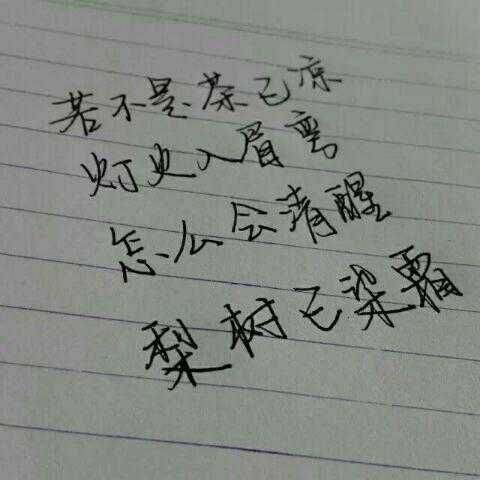 若不是茶已凉
灯火入眉弯
怎么会清醒
梨树已染霜